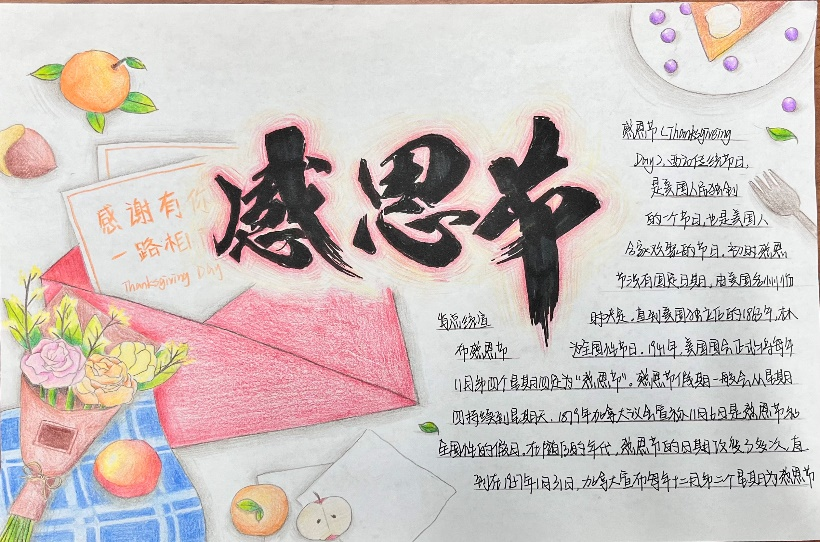 感恩节
感谢有你
一路相
Thanksgiving Day
感恩节（Thanksgiving
Day），西方传统节日，
是美国人民独创
的一个节日，也是美国人
合家欢聚的节日，初时感恩
节没有固定日期，由美国各州临
时决定，直到美国独立后的1863年，林
肯总统宣
布感恩节 为全国性节日。1941年，美国国会正式将每年
11月第四个星期四定为“感恩节”。感恩节假期一般会从星期
四持续到星期天。1879年加拿大议会宣称11月6日是感恩节和
全国性的假日。在随后的年代，感恩节的日期改变了多次，直
到在1957年1月31日，加拿大宣布每年十二月第二个星期为感恩节